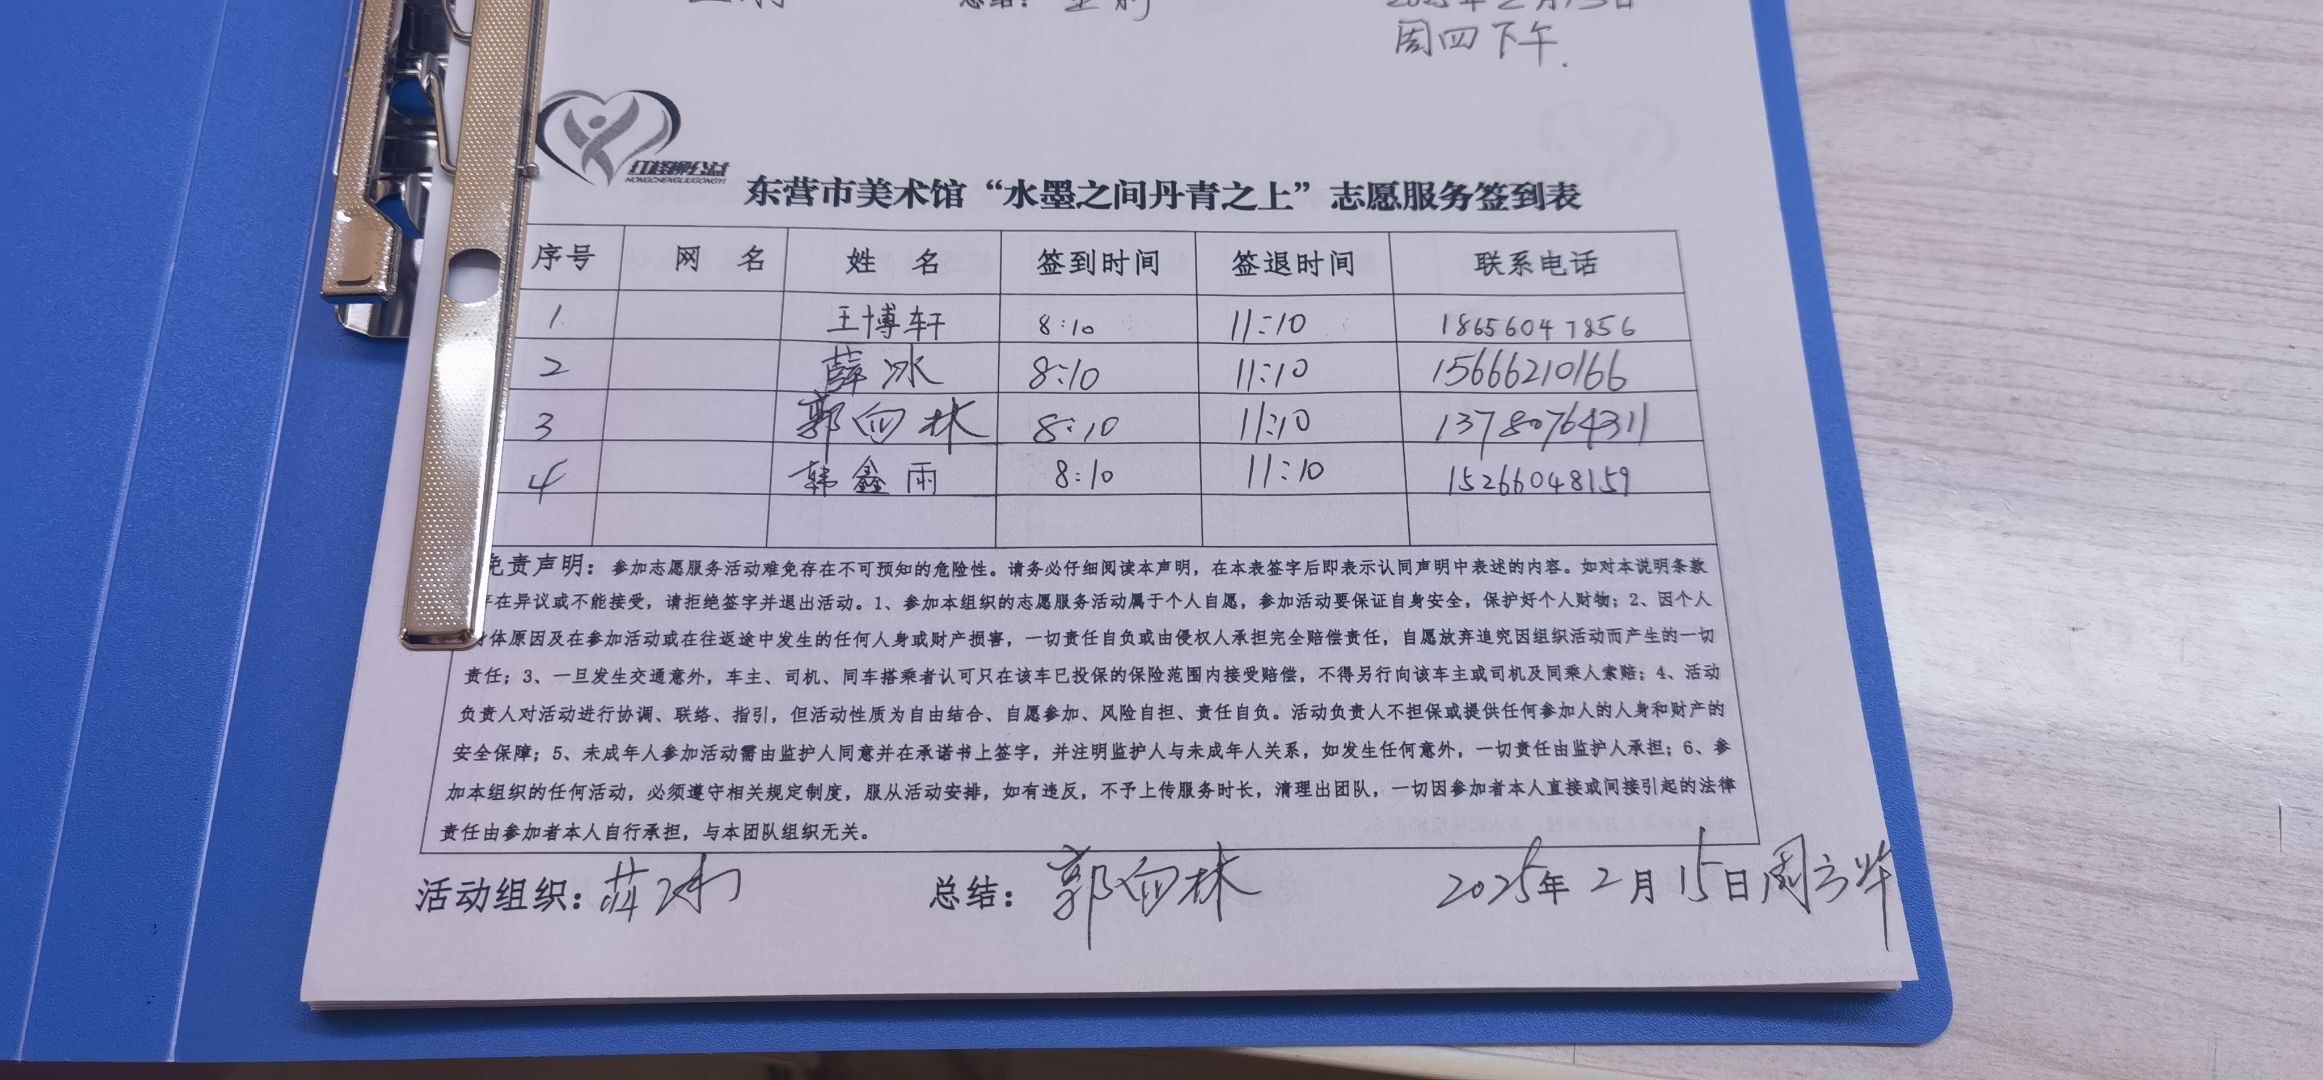 周四下午.
红柽柳公益
HONGCHENGLIUGONGYI
东营市美术馆“水墨之间丹青之上”志愿服务签到表
序号 网 名 姓 名 签到时间 签退时间 联系电话
1 王博轩 8:10 11:10 18656047856
2 薛冰 8:10 11:10 15666210166
3 郭向林 8:10 11:10 13780764311
4 韩鑫雨 8:10 11:10 15266048159
免责声明：参加志愿服务活动难免存在不可预知的危险性。请务必仔细阅读本声明，在本表签字后即表示认同声明中表述的内容。如对本说明条款
存在异议或不能接受，请拒绝签字并退出活动。1、参加本组织的志愿服务活动属于个人自愿，参加活动要保证自身安全，保护好个人财物；2、因个人
身体原因及在参加活动或在往返途中发生的任何人身或财产损害，一切责任自负或由侵权人承担完全赔偿责任，自愿放弃追究因组织活动而产生的一切
责任；3、一旦发生交通意外，车主、司机、同车搭乘者认可只在该车已投保的保险范围内接受赔偿，不得另行向该车主或司机及同乘人索赔；4、活动
负责人对活动进行协调、联络、指引，但活动性质为自由结合、自愿参加、风险自担、责任自负。活动负责人不担保或提供任何参加人的人身和财产的
安全保障；5、未成年人参加活动需由监护人同意并在承诺书上签字，并注明监护人与未成年人关系，如发生任何意外，一切责任由监护人承担；6、参
加本组织的任何活动，必须遵守相关规定制度，服从活动安排，如有违反，不予上传服务时长，清理出团队，一切因参加者本人直接或间接引起的法律
责任由参加者本人自行承担，与本团队组织无关。
活动组织：薛冰 总结：郭向林 2025年2月15日周六